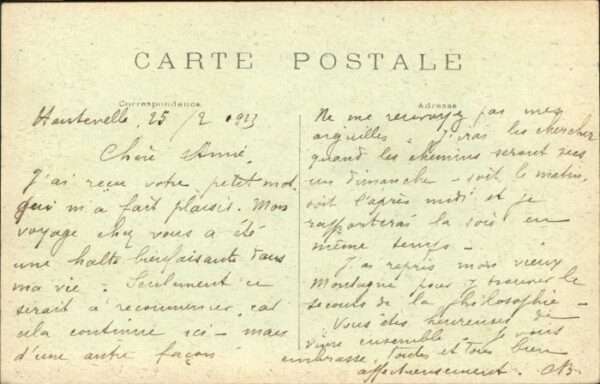 CARTE POSTALE
Correspondance
Adresse
Hauteville, 25/2 1923
Chère Amie,
J'ai reçu votre petit mot
qui m'a fait plaisir. Mon
voyage chez vous a été
une halte bienfaisante dans
ma vie. Seulement ce
serait à recommencer, car
cela continue ici - mais
d'une autre façon
Ne me renvoyez pas mes
aiguilles. J'irai les chercher
quand les chemins seront secs
un dimanche - soit le matin,
soit l'après midi et je
rapporterai la soie en
même temps -
J'ai repris mon vieux
Montaigne pour y trouver le
secours de la philosophie -
Vous êtes heureuses de
vivre ensemble. Je vous
embrasse, toutes et tous bien
affectueusement.